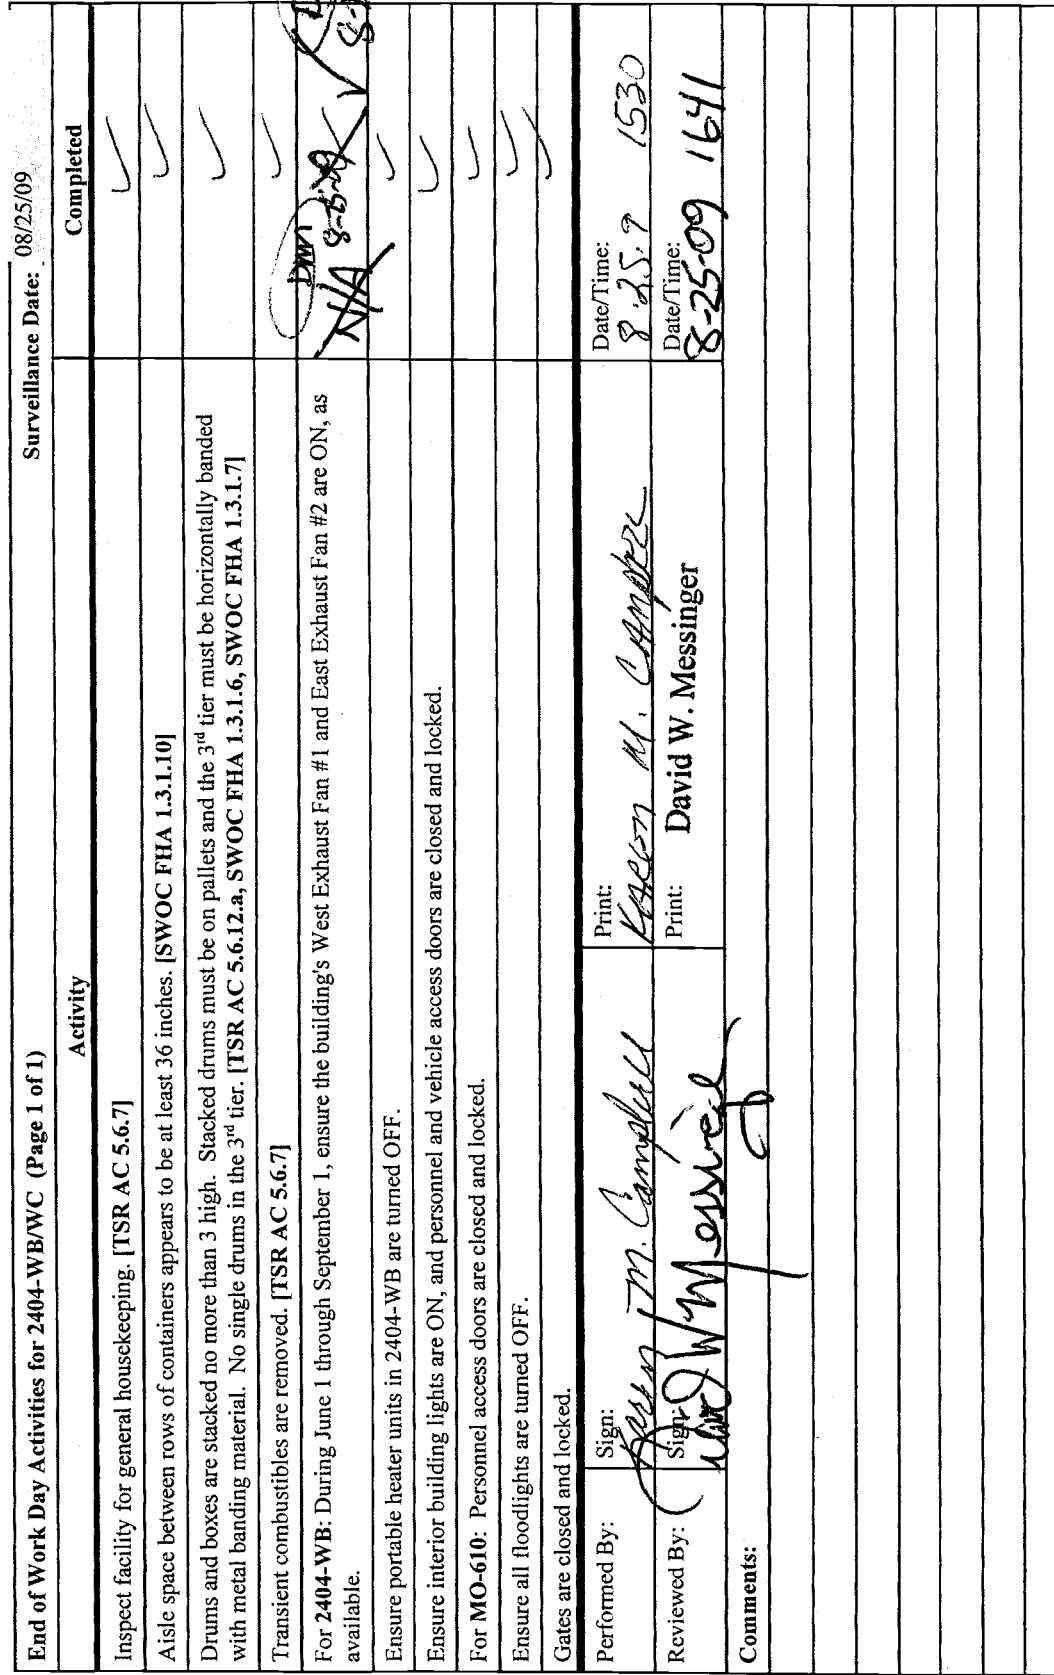 End of Work Day Activities for 2404-WB/WC (Page 1 of 1)
Surveillance Date: 08/25/09
Activity
Completed
Inspect facility for general housekeeping. [TSR AC 5.6.7]
✓
Aisle space between rows of containers appears to be at least 36 inches. [SWOC FHA 1.3.1.10]
✓
Drums and boxes are stacked no more than 3 high. Stacked drums must be on pallets and the 3rd tier must be horizontally banded
with metal banding material. No single drums in the 3rd tier. [TSR AC 5.6.12.a, SWOC FHA 1.3.1.6, SWOC FHA 1.3.1.7]
✓
Transient combustibles are removed. [TSR AC 5.6.7]
✓
For 2404-WB: During June 1 through September 1, ensure the building's West Exhaust Fan #1 and East Exhaust Fan #2 are ON, as
available.
N/A
✓
Ensure portable heater units in 2404-WB are turned OFF.
✓
Ensure interior building lights are ON, and personnel and vehicle access doors are closed and locked.
✓
For MO-610: Personnel access doors are closed and locked.
✓
Ensure all floodlights are turned OFF.
✓
Gates are closed and locked.
✓
Performed By:
Sign:
Karen M. Campbell
Print:
Karen M. Campbell
Date/Time:
8.25.9 1530
Reviewed By:
Sign:
David W Messinger
Print:
David W. Messinger
Date/Time:
8-25-09 1641
Comments: